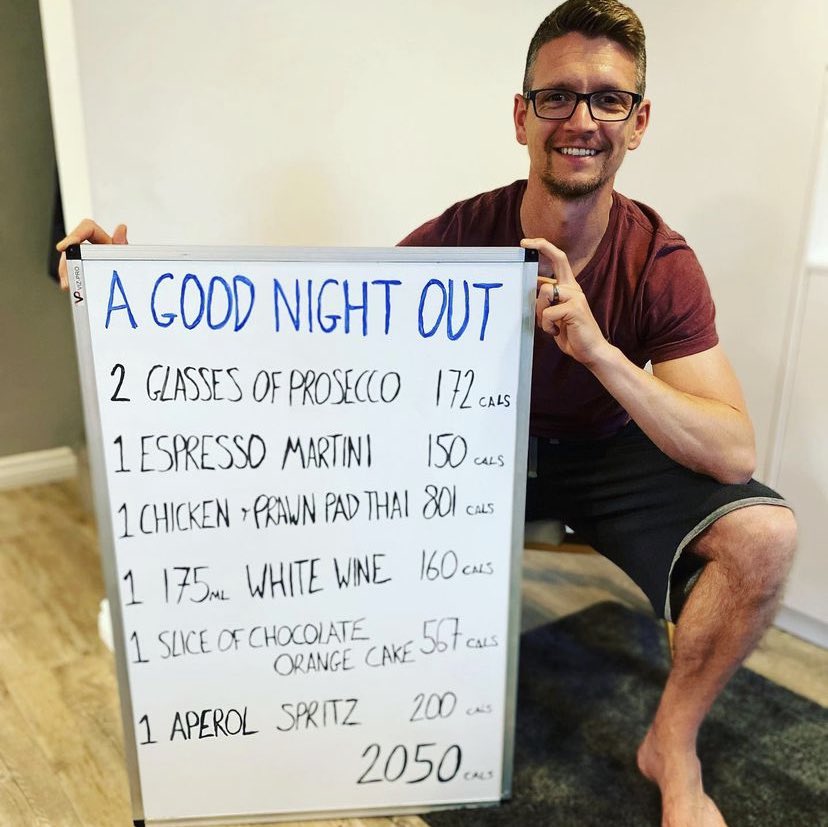 VIZ-PRO
A GOOD NIGHT OUT
2 GLASSES OF PROSECCO 172 CALS
1 ESPRESSO MARTINI 150 CALS
1 CHICKEN + PRAWN PAD THAI 801 CALS
1 175ML WHITE WINE 160 CALS
1 SLICE OF CHOCOLATE
ORANGE CAKE 567 CALS
1 APEROL SPRITZ 200 CALS
2050 CALS